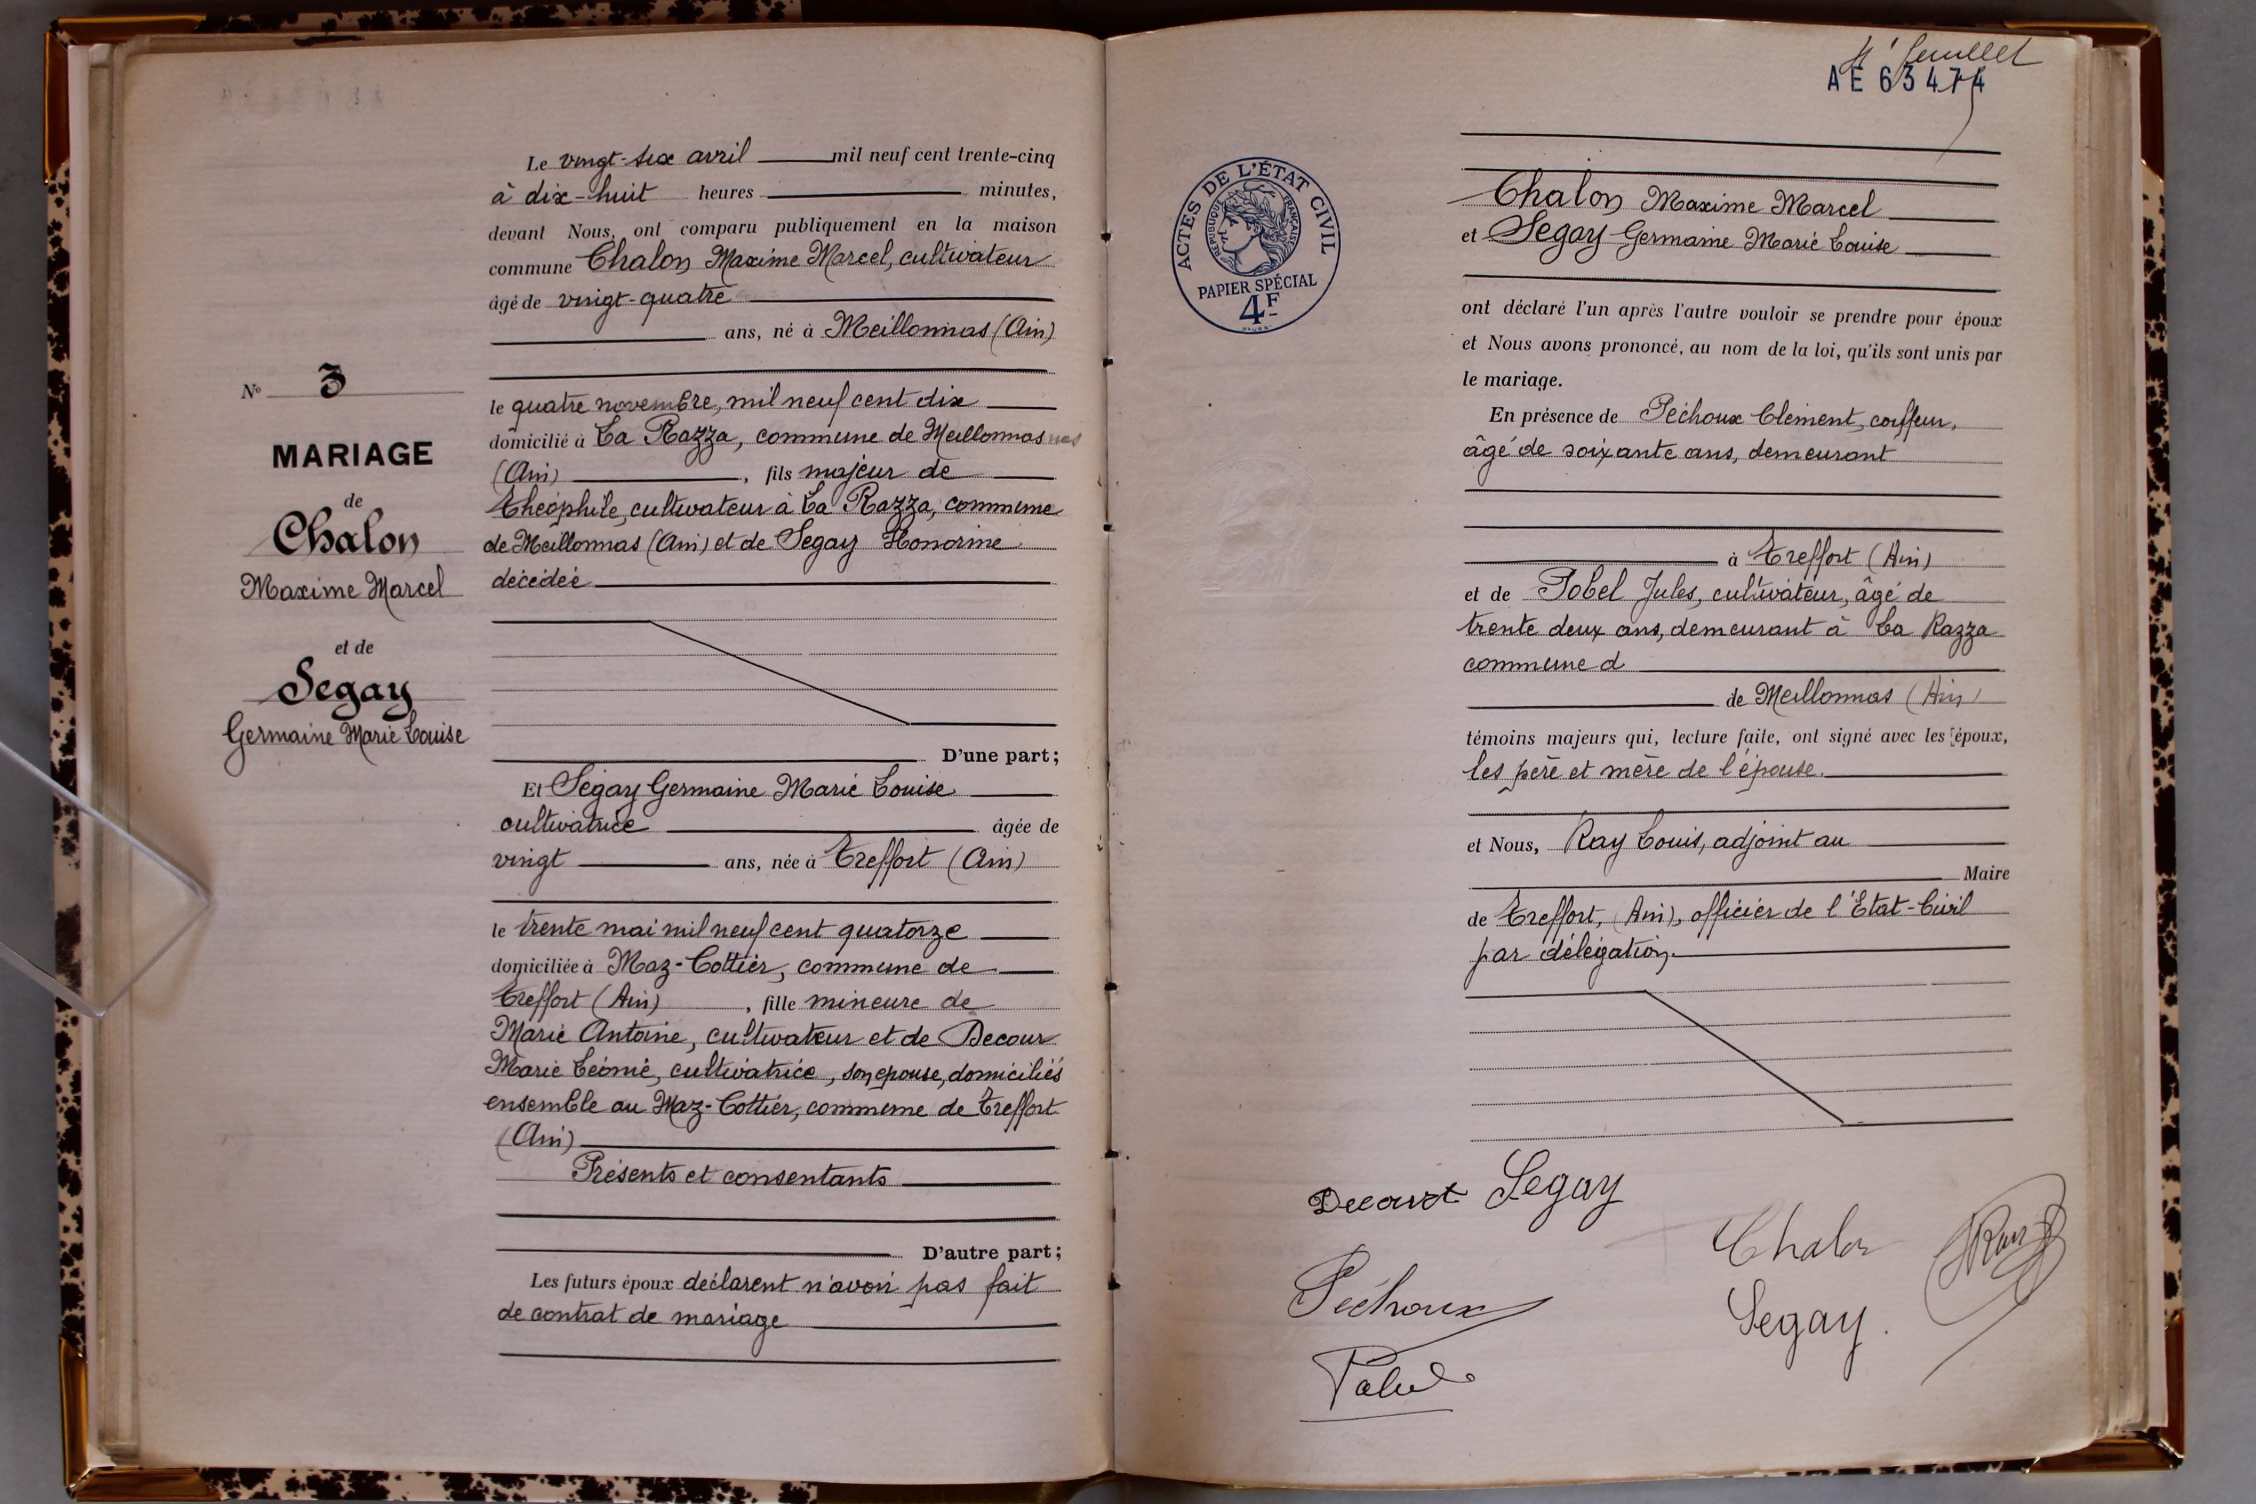 Le vingt-six avril mil neuf cent trente-cinq
à dix-huit heures minutes,
devant Nous, ont comparu publiquement en la maison
commune Chalon Maxime Marcel, cultivateur
âgé de vingt-quatre
ans, né à Meillonnas (Ain)
le quatre novembre, mil neuf cent dix
domicilié à La Razza, commune de Meillonnas
(Ain), fils majeur de
Théophile, cultivateur à La Razza, commune
de Meillonnas (Ain) et de Segay Honorine
décédée
D'une part;
Et Segay Germaine Marie Louise
cultivatrice âgée de
vingt ans, née à Treffort (Ain)
le trente mai mil neuf cent quatorze
domiciliée à Maz-Cottier, commune de
Treffort (Ain), fille mineure de
Marie Antoine, cultivateur et de Decour
Marie Léonie, cultivatrice, son épouse, domiciliés
ensemble au Maz-Cottier, commune de Treffort
(Ain)
Présents et consentants
D'autre part;
Les futurs époux déclarent n'avoir pas fait
de contrat de mariage
N° 3
MARIAGE
de
Chalon
Maxime Marcel
et de
Segay
Germaine Marie Louise
4e feuillet
AE 63474
ACTES DE L'ÉTAT CIVIL
RÉPUBLIQUE FRANÇAISE
PAPIER SPÉCIAL
4F
Chalon Maxime Marcel
et Segay Germaine Marie Louise
ont déclaré l'un après l'autre vouloir se prendre pour époux
et Nous avons prononcé, au nom de la loi, qu'ils sont unis par
le mariage.
En présence de Péchoux Clément, coiffeur,
âgé de soixante ans, demeurant
à Treffort (Ain)
et de Pobel Jules, cultivateur, âgé de
trente deux ans, demeurant à La Razza
commune d
de Meillonnas (Ain)
témoins majeurs qui, lecture faite, ont signé avec les époux,
les père et mère de l'épouse.
et Nous, Ray Louis, adjoint au
Maire
de Treffort, (Ain), officier de l'Etat-Civil
par délégation.
Segay
Chalon
Péchoux
Segay.